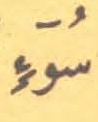 سُوٓءٍ